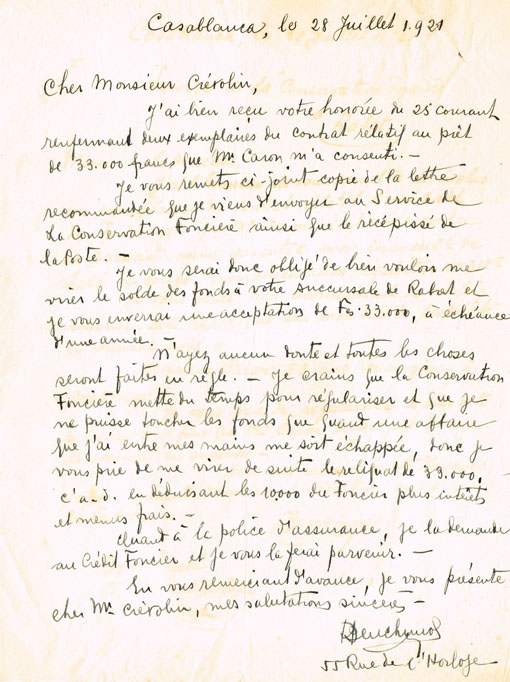 Casablanca, le 28 Juillet 1.921
Cher Monsieur Crévolin,
J'ai bien reçu votre honorée du 25 courant
renfermant deux exemplaires du contrat rélatif au prêt
de 33.000 francs que Mr. Caron m'a consenti. —
Je vous remets ci-joint copie de la lettre
recommandée que je viens d'envoyer au Service de
La Conservation Foncière ainsi que le récépissé de
la Poste. —
Je vous serai donc obligé de bien vouloir me
virer le solde des fonds à votre succursale de Rabat et
je vous enverrai une acceptation de Frs. 33.000, à échéance
d'une année. —
N'ayez aucun doute et toutes les choses
seront faites en règle. — Je crains que la Conservation
Foncière mette du temps pour régulariser et que je
ne puisse toucher les fonds que quand une affaire
que j'ai entre mes mains me soit échappée, donc je
vous prie de me virer de suite le reliquat de 33.000, —
c'a.d. en déduisant les 10000 du Foncier plus intérêts
et menus frais. —
Quant à la police d'assurance, je la demande
au Crédit Foncier et je vous la ferai parvenir. —
En vous remerciant d'avance, je vous présente
cher Mr. Crévolin, mes salutations sincères —
55 Rue de l'Horloge